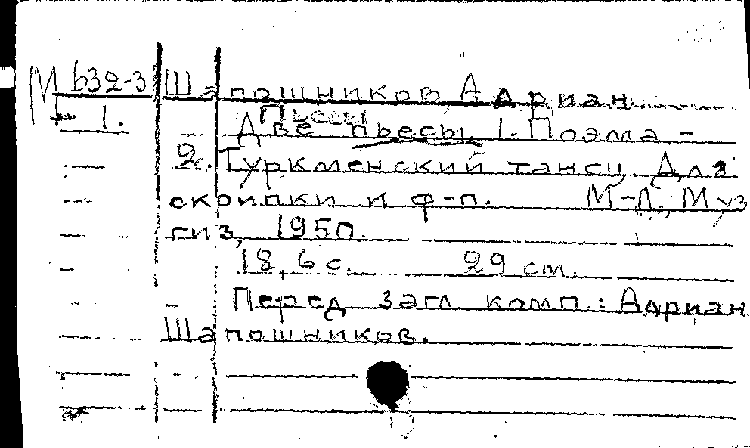 М 632-3 Шапошников Адриан.
1. Пьесы
Две пьесы. 1. Поэма -
2. Туркменский танец. Для
скрипки и ф-п. М-Л, Муз
гиз, 1950.
18, 6 с. 29 см.
Перед загл комп: Адриан
Шапошников.